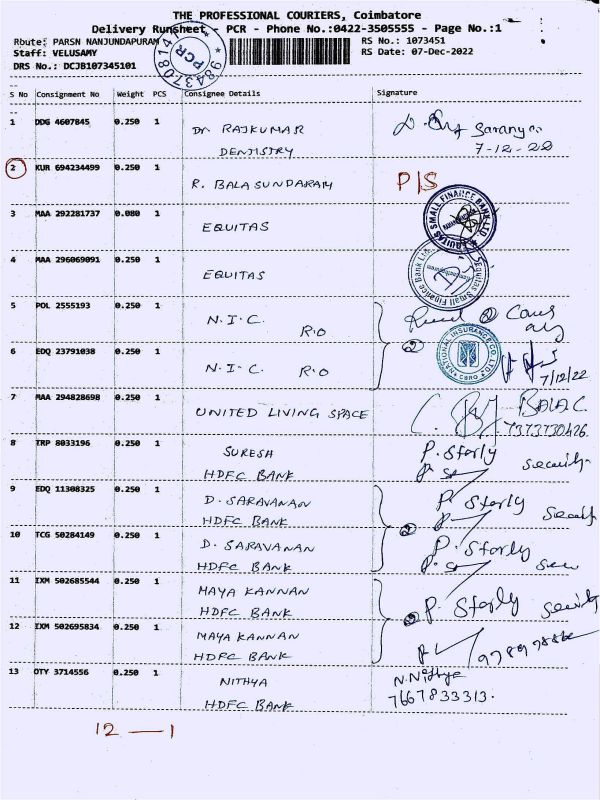 THE PROFESSIONAL COURIERS, Coimbatore
Delivery Runsheet - PCR - Phone No.:0422-3505555 - Page No.:1
Route: PARSN NANJUNDAPURAM
RS No.: 1073451
Staff: VELUSAMY
RS Date: 07-Dec-2022
DRS No.: DCJB107345101
PCR
S No Consignment No Weight PCS Consignee Details Signature
1 DDG 4607845 0.250 1 Dr. RAJKUMAR Saranya
DENTISTRY 7-12-22
2 KUR 694234499 0.250 1 R. BALASUNDARAM P/S
3 MAA 292281737 0.080 1 EQUITAS
EQUITAS SMALL FINANCE BANK LTD
4 MAA 296069091 0.250 1 EQUITAS
Equitas Small Finance Bank Ltd.
5 POL 2555193 0.250 1 N.I.C. R.O
6 EDQ 23791038 0.250 1 N.I.C. R.O 2
NATIONAL INSURANCE CO. LTD.
7/12/22
7 MAA 294828698 0.250 1 UNITED LIVING SPACE BALA.C
7373730426
8 TRP 8033196 0.250 1 SURESH P. Sterly
HDFC BANK Security
9 EDQ 11308325 0.250 1 D. SARAVANAN P. Sterly
HDFC BANK
2
10 TCG 50284149 0.250 1 D. SARAVANAN P. Sterly
HDFC BANK
11 IXM 502685544 0.250 1 MAYA KANNAN P. Sterly
HDFC BANK
2
12 IXM 502695834 0.250 1 MAYA KANNAN
HDFC BANK
13 OTY 3714556 0.250 1 NITHYA N. Nithya
HDFC BANK 7667833313.
12 — 1